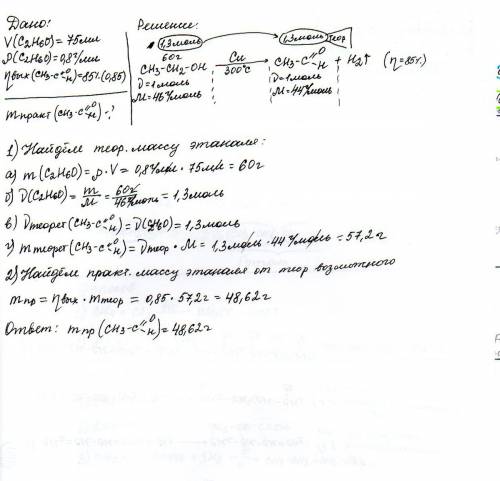 Дано:
V(C2H6O) = 75мл
ρ(C2H6O)=0,8г/мл
ηвых(CH3-C=O H)=85%(0,85)
mпракт(CH3-C=O H)-?
Решение:
1,3моль
1,3моль теор
60г
CH3-CH2-OH Cu 300°C → CH3-C=O H + H2↑ (η=85%)
ν=1моль ν=1моль
M=46г/моль M=44г/моль
1) Найдём теор. массу этаналя:
а) m(C2H6O)=ρ·V=0,8г/мл·75мл=60г
б) ν(C2H6O)=m/M=60г/46г/моль=1,3моль
в) νтеорет(CH3-C=O H)=ν(C2H6O)=1,3моль
г) mтеорет(CH3-C=O H)=νтеор·M=1,3моль·44г/моль=57,2г
2) Найдём практ. массу этаналя от теор возможного
mпр=ηвых·mтеор=0,85·57,2г=48,62г
Ответ: mпр(CH3-C=O H)=48,62г